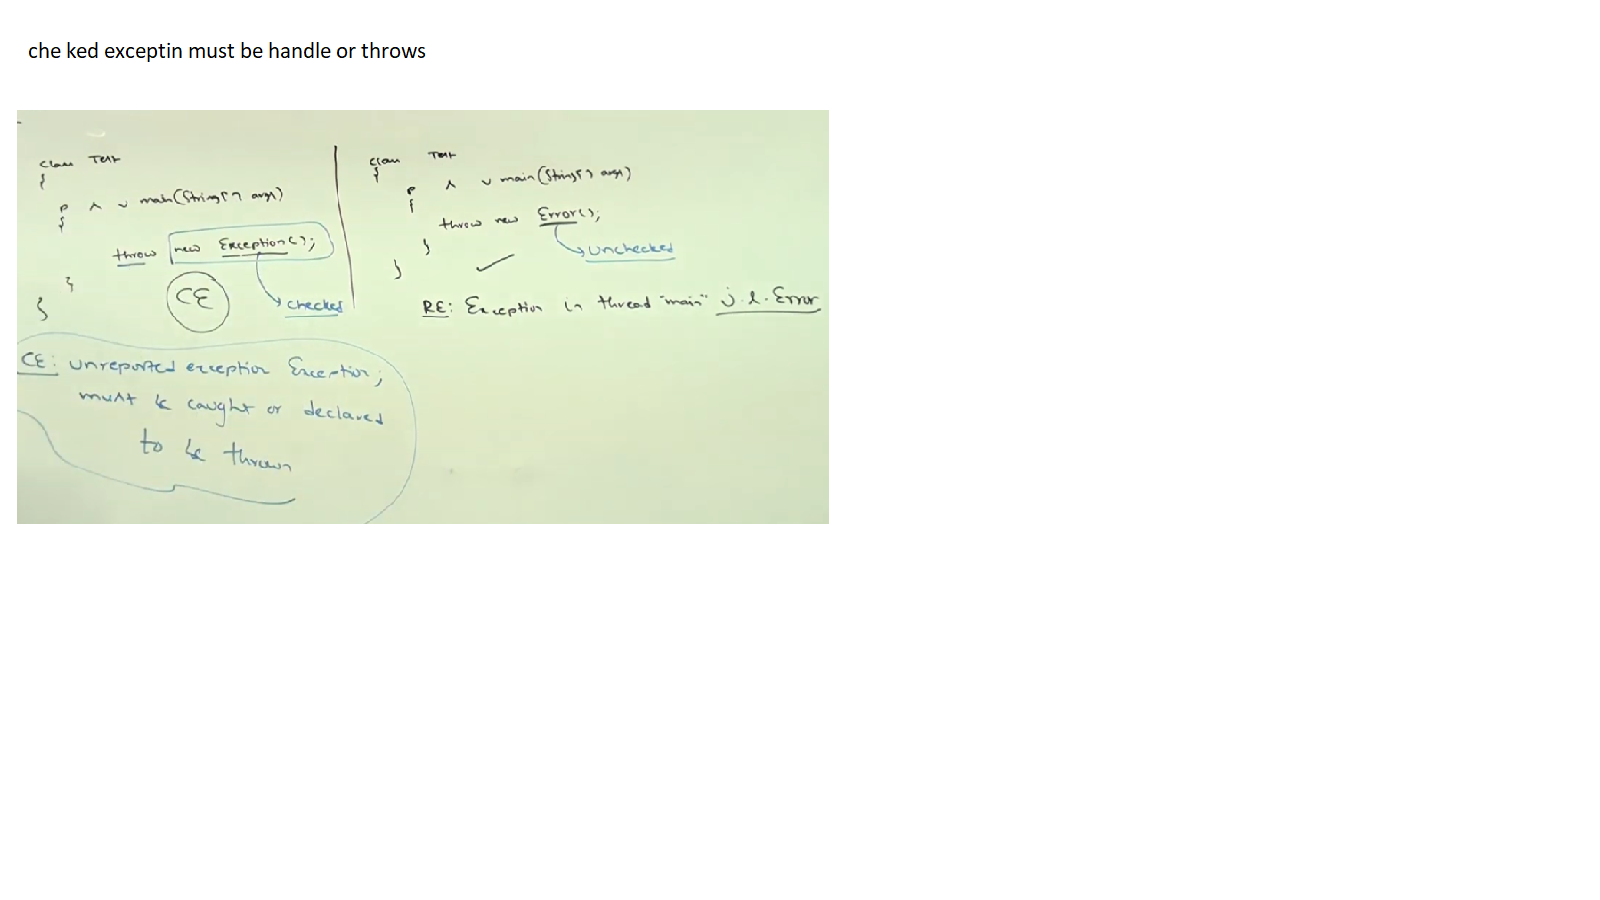 che ked exceptin must be handle or throws
class Test
{
p s v main(String[] args)
{
throw new Exception();
}
}
CE
checked
CE: unreported exception Exception;
must be caught or declared
to be thrown
class Test
{
p s v main(String[] args)
{
throw new Error();
}
}
unchecked
RE: Exception in thread "main" j.l.Error